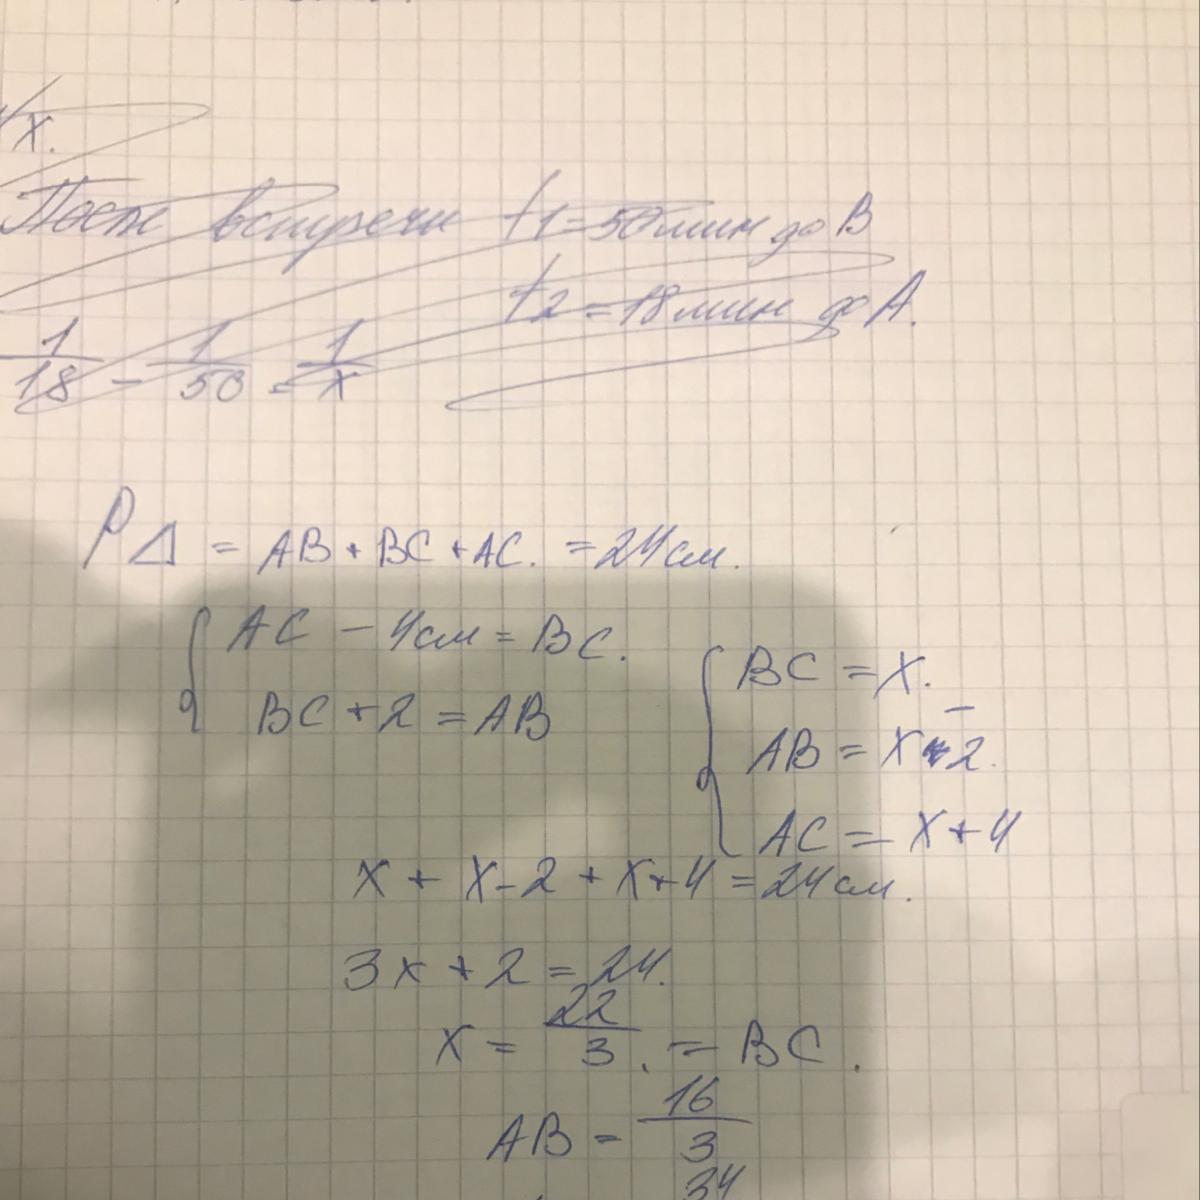 х.
После встречи t1=50мин до В
t2=18мин до А.
1/18 - 1/50 = 1/х
PΔ = AB + BC + AC. = 24см.
{ AC - 4см = BC.
BC + 2 = AB
{ BC = x.
AB = x - 2.
AC = x + 4
x + x - 2 + x + 4 = 24см.
3x + 2 = 24.
x = 22/3. = BC.
AB = 16/3
34